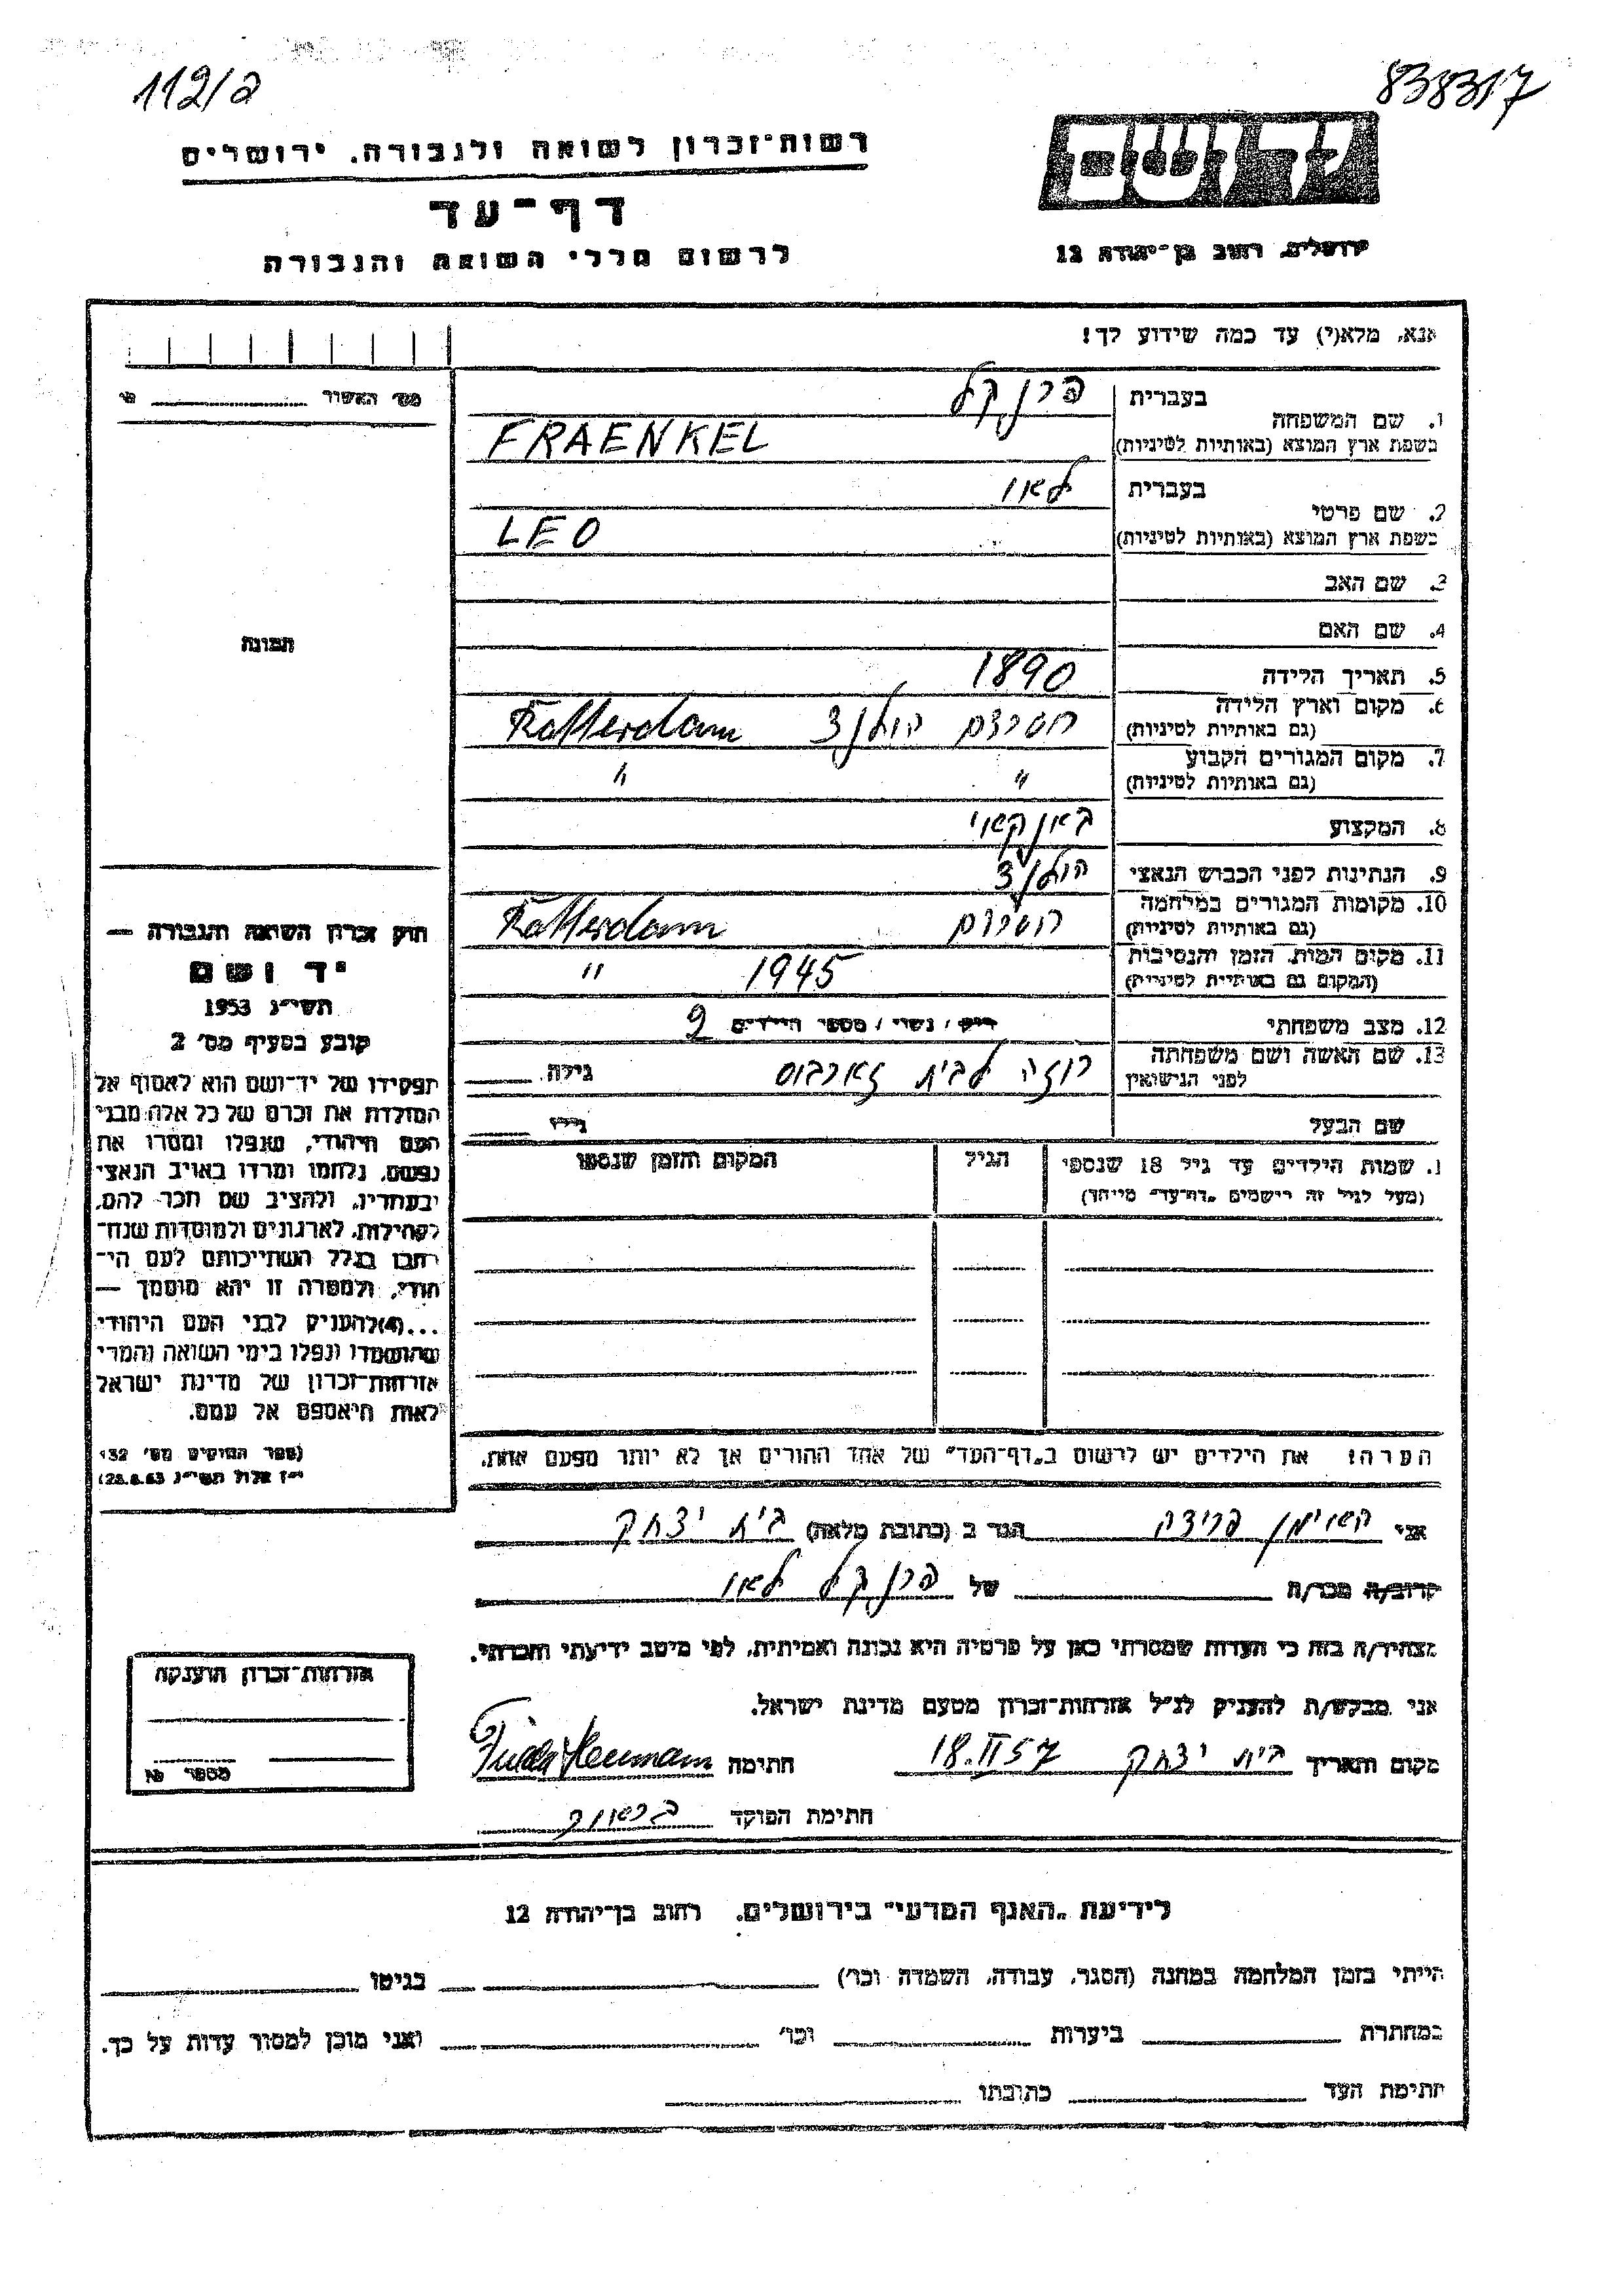 112/a
838317
רשות־זכרון לשואה ולגבורה. ירושלים
דף־עד
לרשום חללי השואה והגבורה
יד ושם
ירושלים. רחוב בן־יהודה 12
אנא, מלא(י) עד כמה שידוע לך!
מס׳ האשור
בעברית פרנקל
1. שם המשפחה
בשפת ארץ המוצא (באותיות לטיניות) FRAENKEL
בעברית לאו
2. שם פרטי
בשפת ארץ המוצא (באותיות לטיניות) LEO
3. שם האב
4. שם האם
תמונה
5. תאריך הלידה 1890
6. מקום וארץ הלידה רוטרדם הולנד Rotterdam
(גם באותיות לטיניות)
7. מקום המגורים הקבוע " "
(גם באותיות לטיניות)
8. המקצוע באנקאי
9. הנתינות לפני הכבוש הנאצי הולנד
10. מקומות המגורים במלחמה רוטרדם Rotterdam
(גם באותיות לטיניות)
11. מקום המות. הזמן והנסיבות 1945 "
(המקום גם באותיות לטיניות)
12. מצב משפחתי רווק / נשוי / מספר הילדים 2
13. שם האשה ושם משפחתה רוזה לבית גילה
לפני הנישואין
שם הבעל גילו
שמות הילדים עד גיל 18 שנספו הגיל המקום והזמן שנספו
(מעל לגיל זה רישמים „דף־עד" מייחד)
הערה! את הילדים יש לרשום ב„דף־העד" של אחד ההורים אך לא יותר מפעם אחת.
חוק זכרון השואה והגבורה —
יד ושם
תשי״ג 1953
קובע בסעיף מס׳ 2
תפקידו של יד־ושם הוא לאסוף אל
המולדת את זכרם של כל אלה מבני
העם היהודי, שנפלו ומסרו את
נפשם, נלחמו ומרדו באויב הנאצי
ובעוזריו, ולהציב שם וזכר להם,
לקהילות, לארגונים ולמוסדות שנח־
רבו בגלל השתייכותם לעם הי־
הודי, ולמטרה זו יהא מוסמך —
...(4)להעניק לבני העם היהודי
שהושמדו ונפלו בימי השואה והמרי
אזרחות־זכרון של מדינת ישראל
לאות היאספם אל עמם.
(ספר החוקים מס׳ 132
י״ז אלול תשי״ג 28.8.53)
אני פרידה הגר ב (כתובת מלאה) בית יצחק
קרוב/ה מכר/ה של פרנקל לאו
מצהיר/ה בזה כי העדות שמסרתי כאן על פרטיה היא נכונה ואמיתית, לפי מיטב ידיעתי והכרתי.
אני מבקש/ת להעניק לנ״ל אזרחות־זכרון מטעם מדינת ישראל.
מקום ותאריך בית יצחק 18.II 57 חתימה
חתימת הפוקד
אזרחות־זכרון הוענקה
מספר
לידיעת „האגף המדעי" בירושלים. רחוב בן־יהודה 12
הייתי בזמן המלחמה במחנה (הסגר, עבודה, השמדה וכו׳) בגיטו
במחתרת ביערות וכו׳ ואני מוכן למסור עדות על כך.
חתימת העד כתובתו